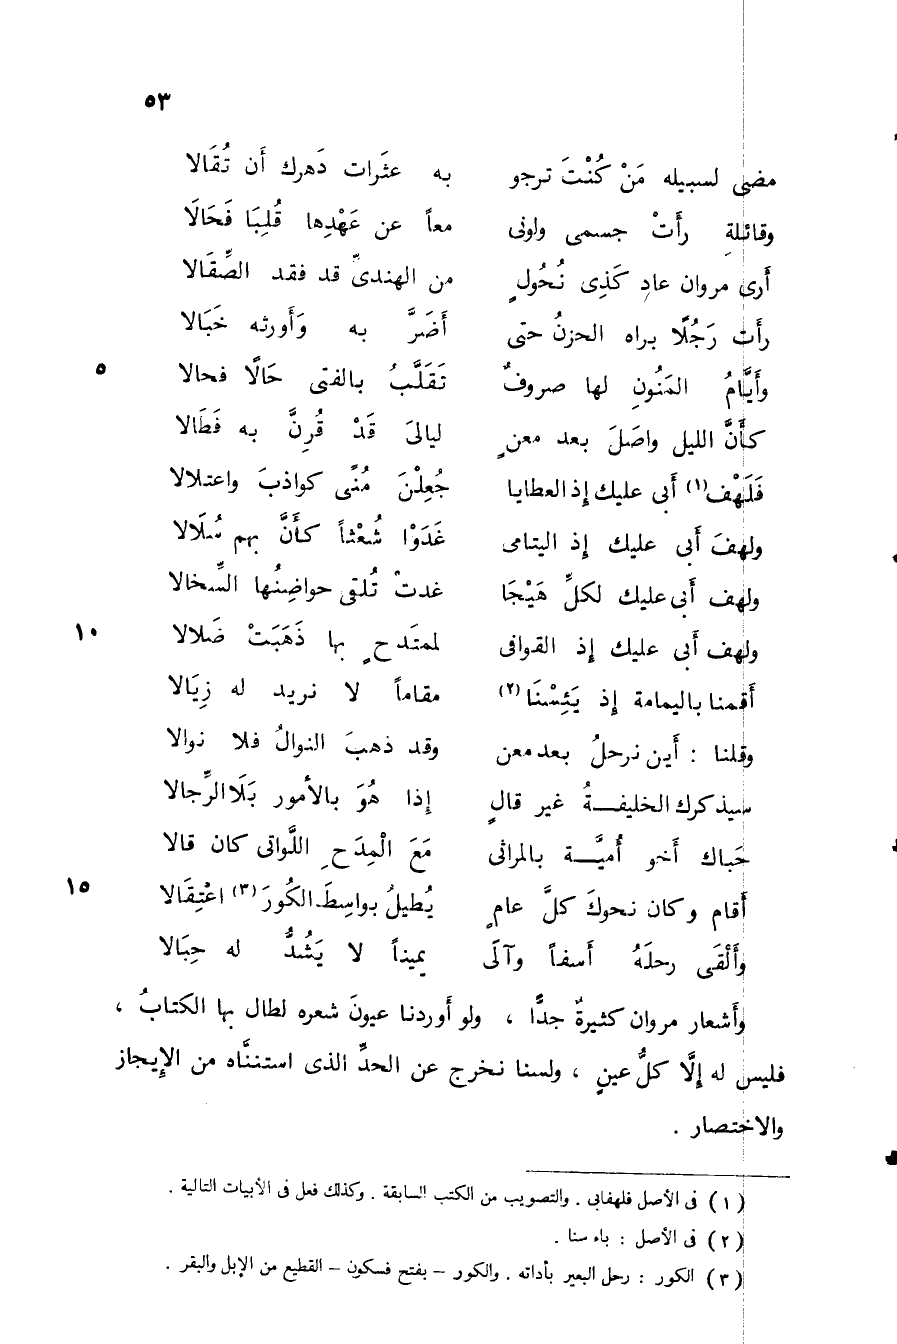 ٥٣
مضى لسبيله مَنْ كُنْتَ ترجو به عثَرات دَهرك أَن تُقَالا
وقائلةِ رأَتْ جسمى ولونى معاً عن عَهْدِها قُلِبَا فَحَالَا
أَرى مروان عادِ كَذِى نُحُولٍ من الهندىِّ قد فقد الصِّقَالا
رأَت رَجُلًا براه الحزنُ حتى أَضَرَّ به وَأَورثه خَبَالا
وأَيَّامُ المَنُونِ لها صروفٌ تَقَلَّبُ بالفتى حَالًا فحالا ٥
كأَنَّ الليل واصَلَ بعد معنٍ ليالىَ قَدْ قُرِنَّ به فَطَالا
فَلَهْف(١) أَبى عليك إِذ العطايا جُعِلْنَ مُنًى كواذبَ واعتلالا
ولهفَ أَبى عليك إِذ اليتامى غَدَوْا شُعْثاً كأَنَّ بهم سُلَالا
ولهف أَبى عليك لكلِّ هَيْجَا غدتْ تُلقى حواضِنُها السِّخالا
ولهف أَبى عليك إِذ القوافى لممتَدحٍ بها ذَهَبَتْ ضَلالا ١٠
أَقمنا باليمامة إِذ يَئِسْنَا(٢) مقاماً لا نريد له زِيَالا
وقلنا : أَين نرحلُ بعد معن وقد ذهبَ النوالُ فلا نوالا
سيذكرك الخليفةُ غير قالٍ إِذا هُوَ بالأمور بَلَا الرِّجالا
حَباك أَخو أُميَّة بالمراثى مَعَ الْمِدَحِ اللَّواتى كان قالا
أَقام وكان نحوكَ كلَّ عامٍ يُطيلُ بواسِطَ الكُورَ(٣) اعْتِقَالا ١٥
وأَلْقَى رحلَهُ أَسفاً وآلَى يميناً لا يَشُدُّ له حِبَالا
وأَشعار مروان كثيرةٌ جدًّا ، ولو أَوردنا عيونَ شعره لطال بها الكتابُ ،
فليس له إِلَّا كلُّ عينٍ ، ولسنا نخرج عن الحدِّ الذى استننَّاه من الإِيجاز
والاختصار .
(١) فى الأصل فلهفابى . والتصويب من الكتب السابقة . وكذلك فعل فى الأبيات التالية .
(٢) فى الأصل : باء سنا .
(٣) الكور : رحل البعير بأداته . والكور – بفتح فسكون – القطيع من الإبل والبقر .